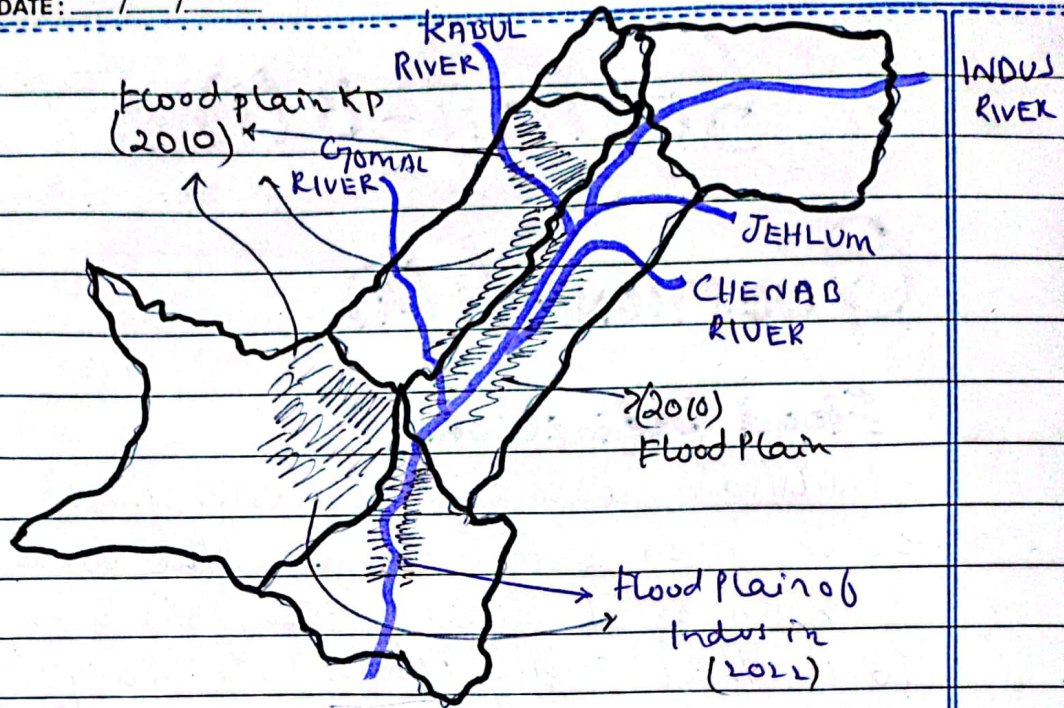 DATE: ___/___/___
KABUL
RIVER
INDUS
RIVER
Flood plain KP
(2010)
GOMAL
RIVER
JEHLUM
CHENAB
RIVER
(2010)
Flood Plain
Flood Plain of
Indus in
(2022)